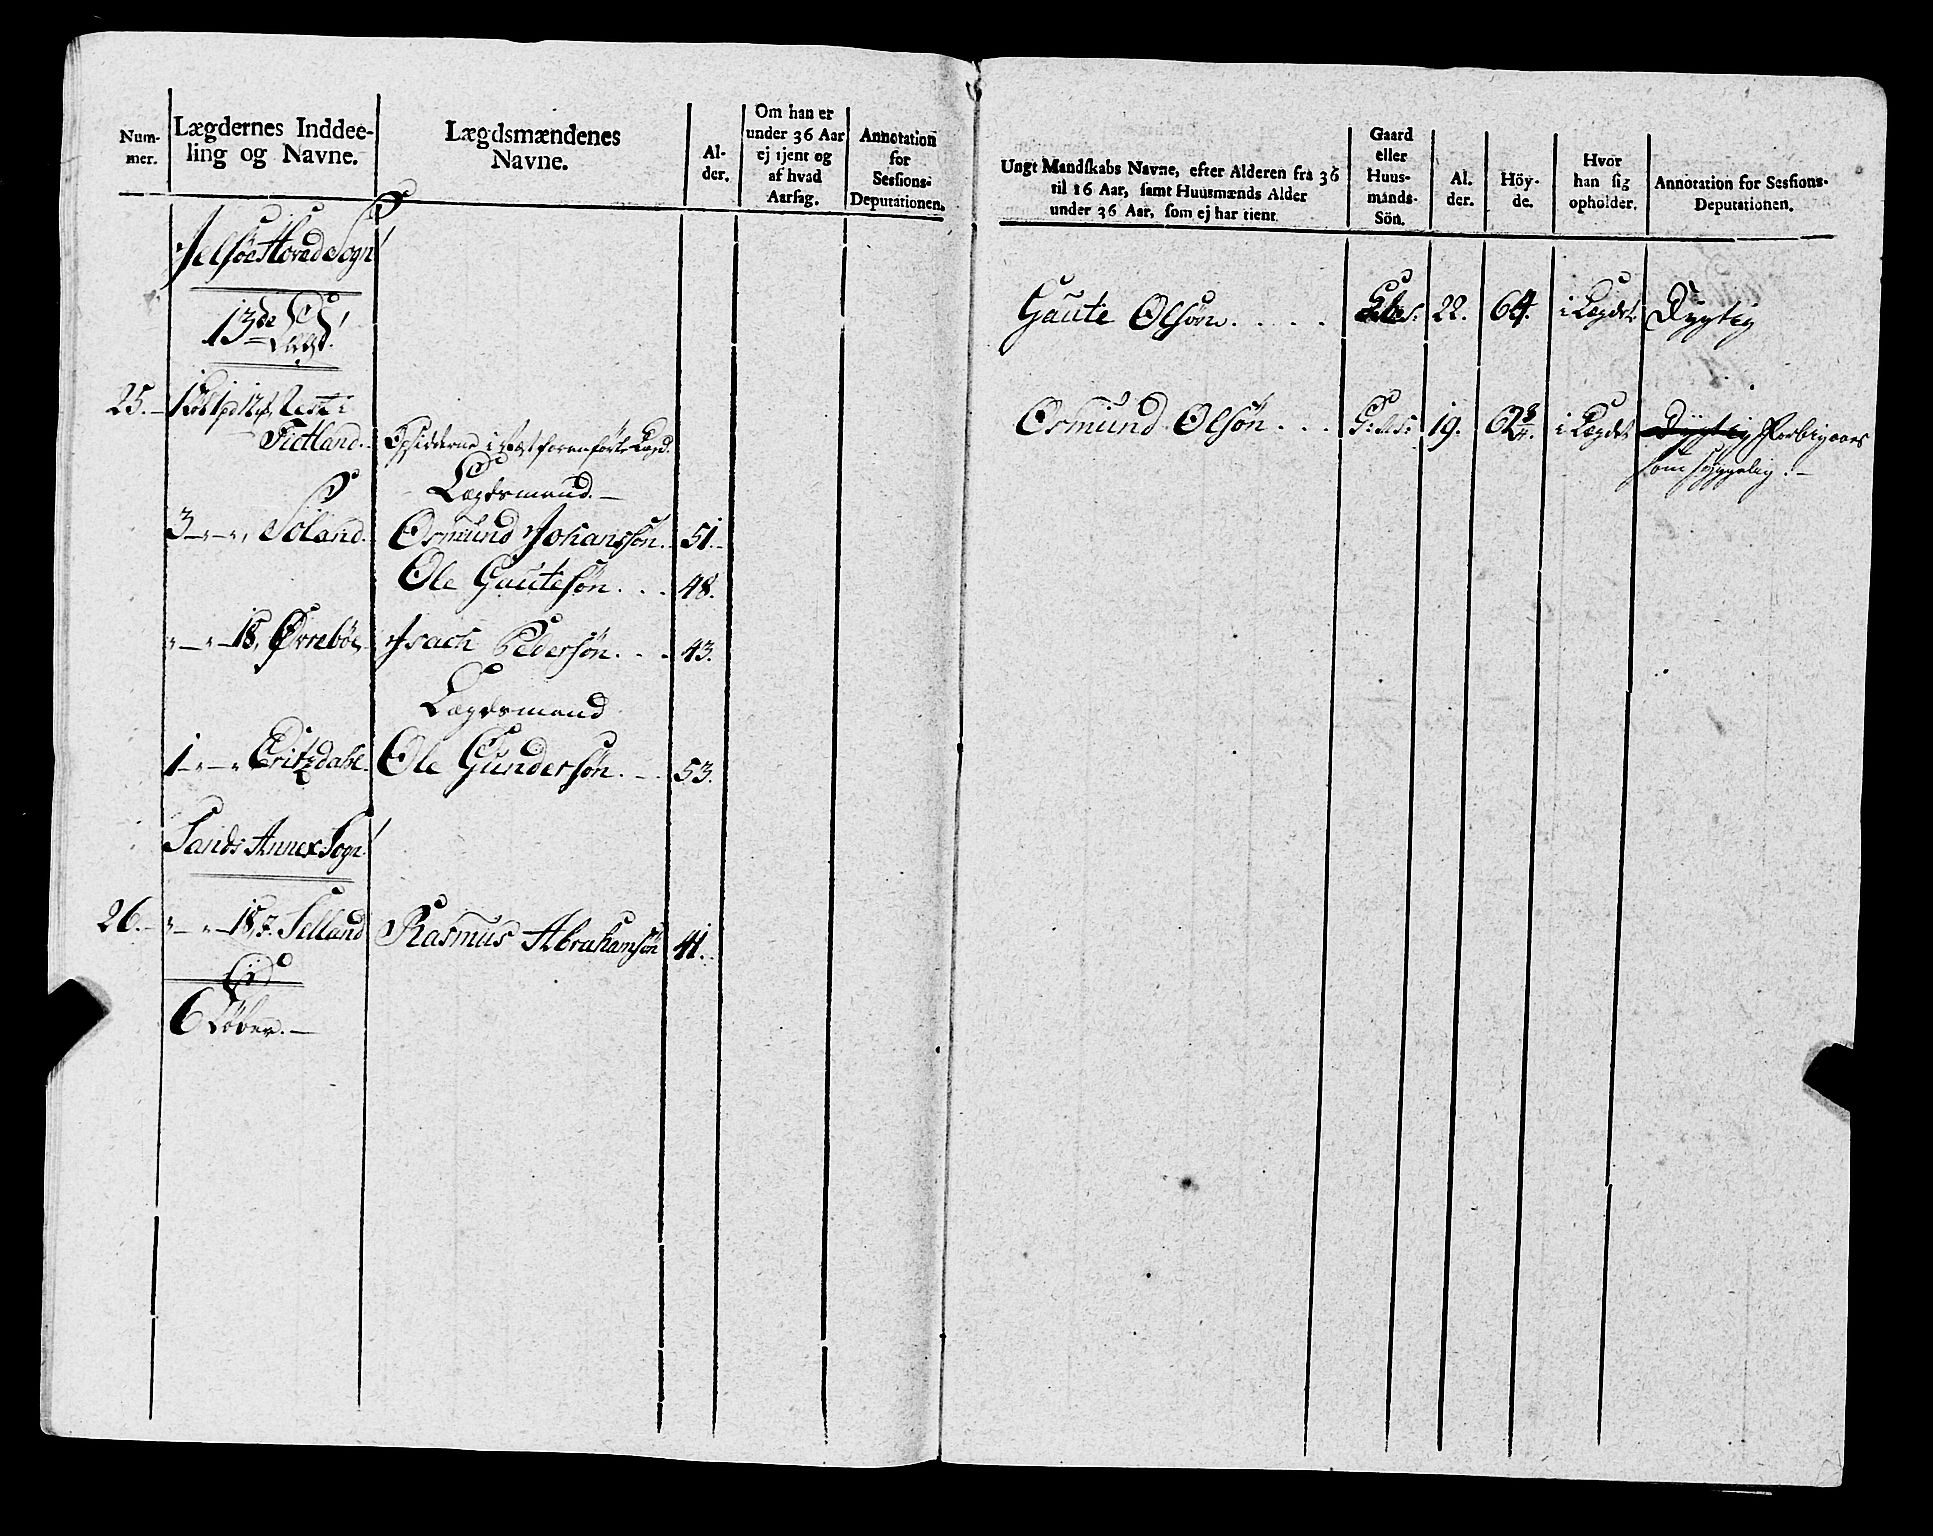 Num-
mer.
Lægdernes Inddee-
ling og Navne.
Lægdsmændenes
Navne.
Al-
der.
Om han er
under 36 Aar
ej tjent og
af hvad
Aarsag.
Annotation
for
Sessions-
Deputationen.
Jelsöe Hoved Sogn
13de Lægd
25.
Fidtland
Lægdsmand.
3 Söland
Ormund Johanssön. 51.
Ole Gautesön. 48.
18 Ørreböe
Isach Pedersön. 43.
Lægdsmand
1 Critzdahl
Ole Gundersön. 53.
Sands Annex Sogn
26. 18 Selland
Rasmus Abrahamsön 41.
6 Löber.
Ungt Mandskabs Navne, efter Alderen fra 36
til 16 Aar, samt Huusmænds Alder
under 36 Aar, som ej har tient.
Gaard
eller
Huus-
mands-
Sön.
Al.
der.
Höy-
de.
Hvor
han sig
opholder.
Annotation for Sessions-
Deputationen.
Gaute Olsön. 22. 64. i Lægdet Dygtig
Ormund Olsön. 19. i Lægdet Dygtig Forbigaaes
som